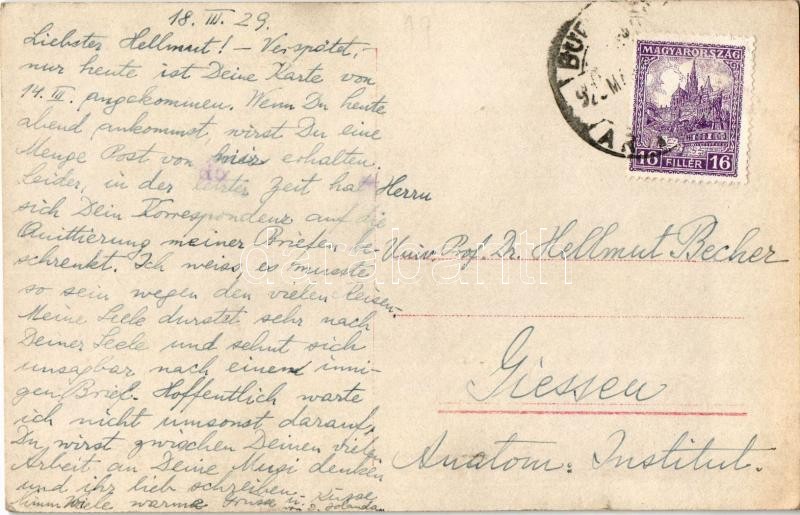 18. III. 29.
Liebster Hellmut! – Verspätet,
nur heute ist Deine Karte von
14. III. angekommen. Wenn Du heute
abend ankommst, wirst Du eine
Menge Post von mir erhalten.
Leider, in der letzter Zeit hat
sich Dein Korrespondenz auf die
Quittierung meiner Briefen be-
schrenkt. Ich weiss, es musste
so sein wegen den vielen Reisen.
Meine Seele durstet sehr nach
Deiner Seele und sehnt sich
unsagbar nach einem inni-
gen Brief. Hoffentlich warte
ich nicht umsonst darauf,
Du wirst zwischen Deinen vielen
Arbeit an Deine Musi denken
und ihr lieb schreiben.
Nimm viele warme Grüsse u. Küsse
MAGYARORSZÁG
16 FILLÉR 16
Herrn
Univ. Prof. Dr. Hellmut Becher
Giessen
Anatom. Institut.
darabanth